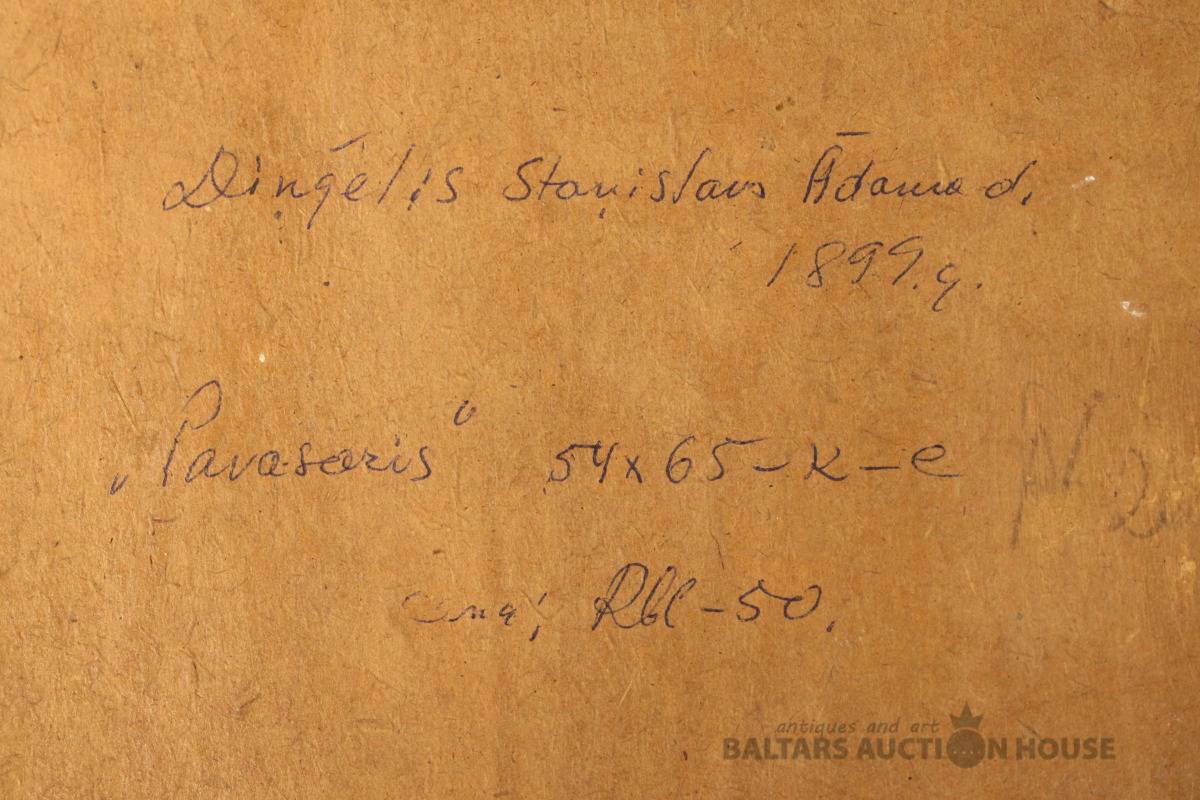 Diņģēļis Staņislavs Ādama d.
1899.g.
„Pavasaris" 54x65-K-e
cena; Rbl-50.
N 2
antiques and art
BALTARS AUCTION HOUSE